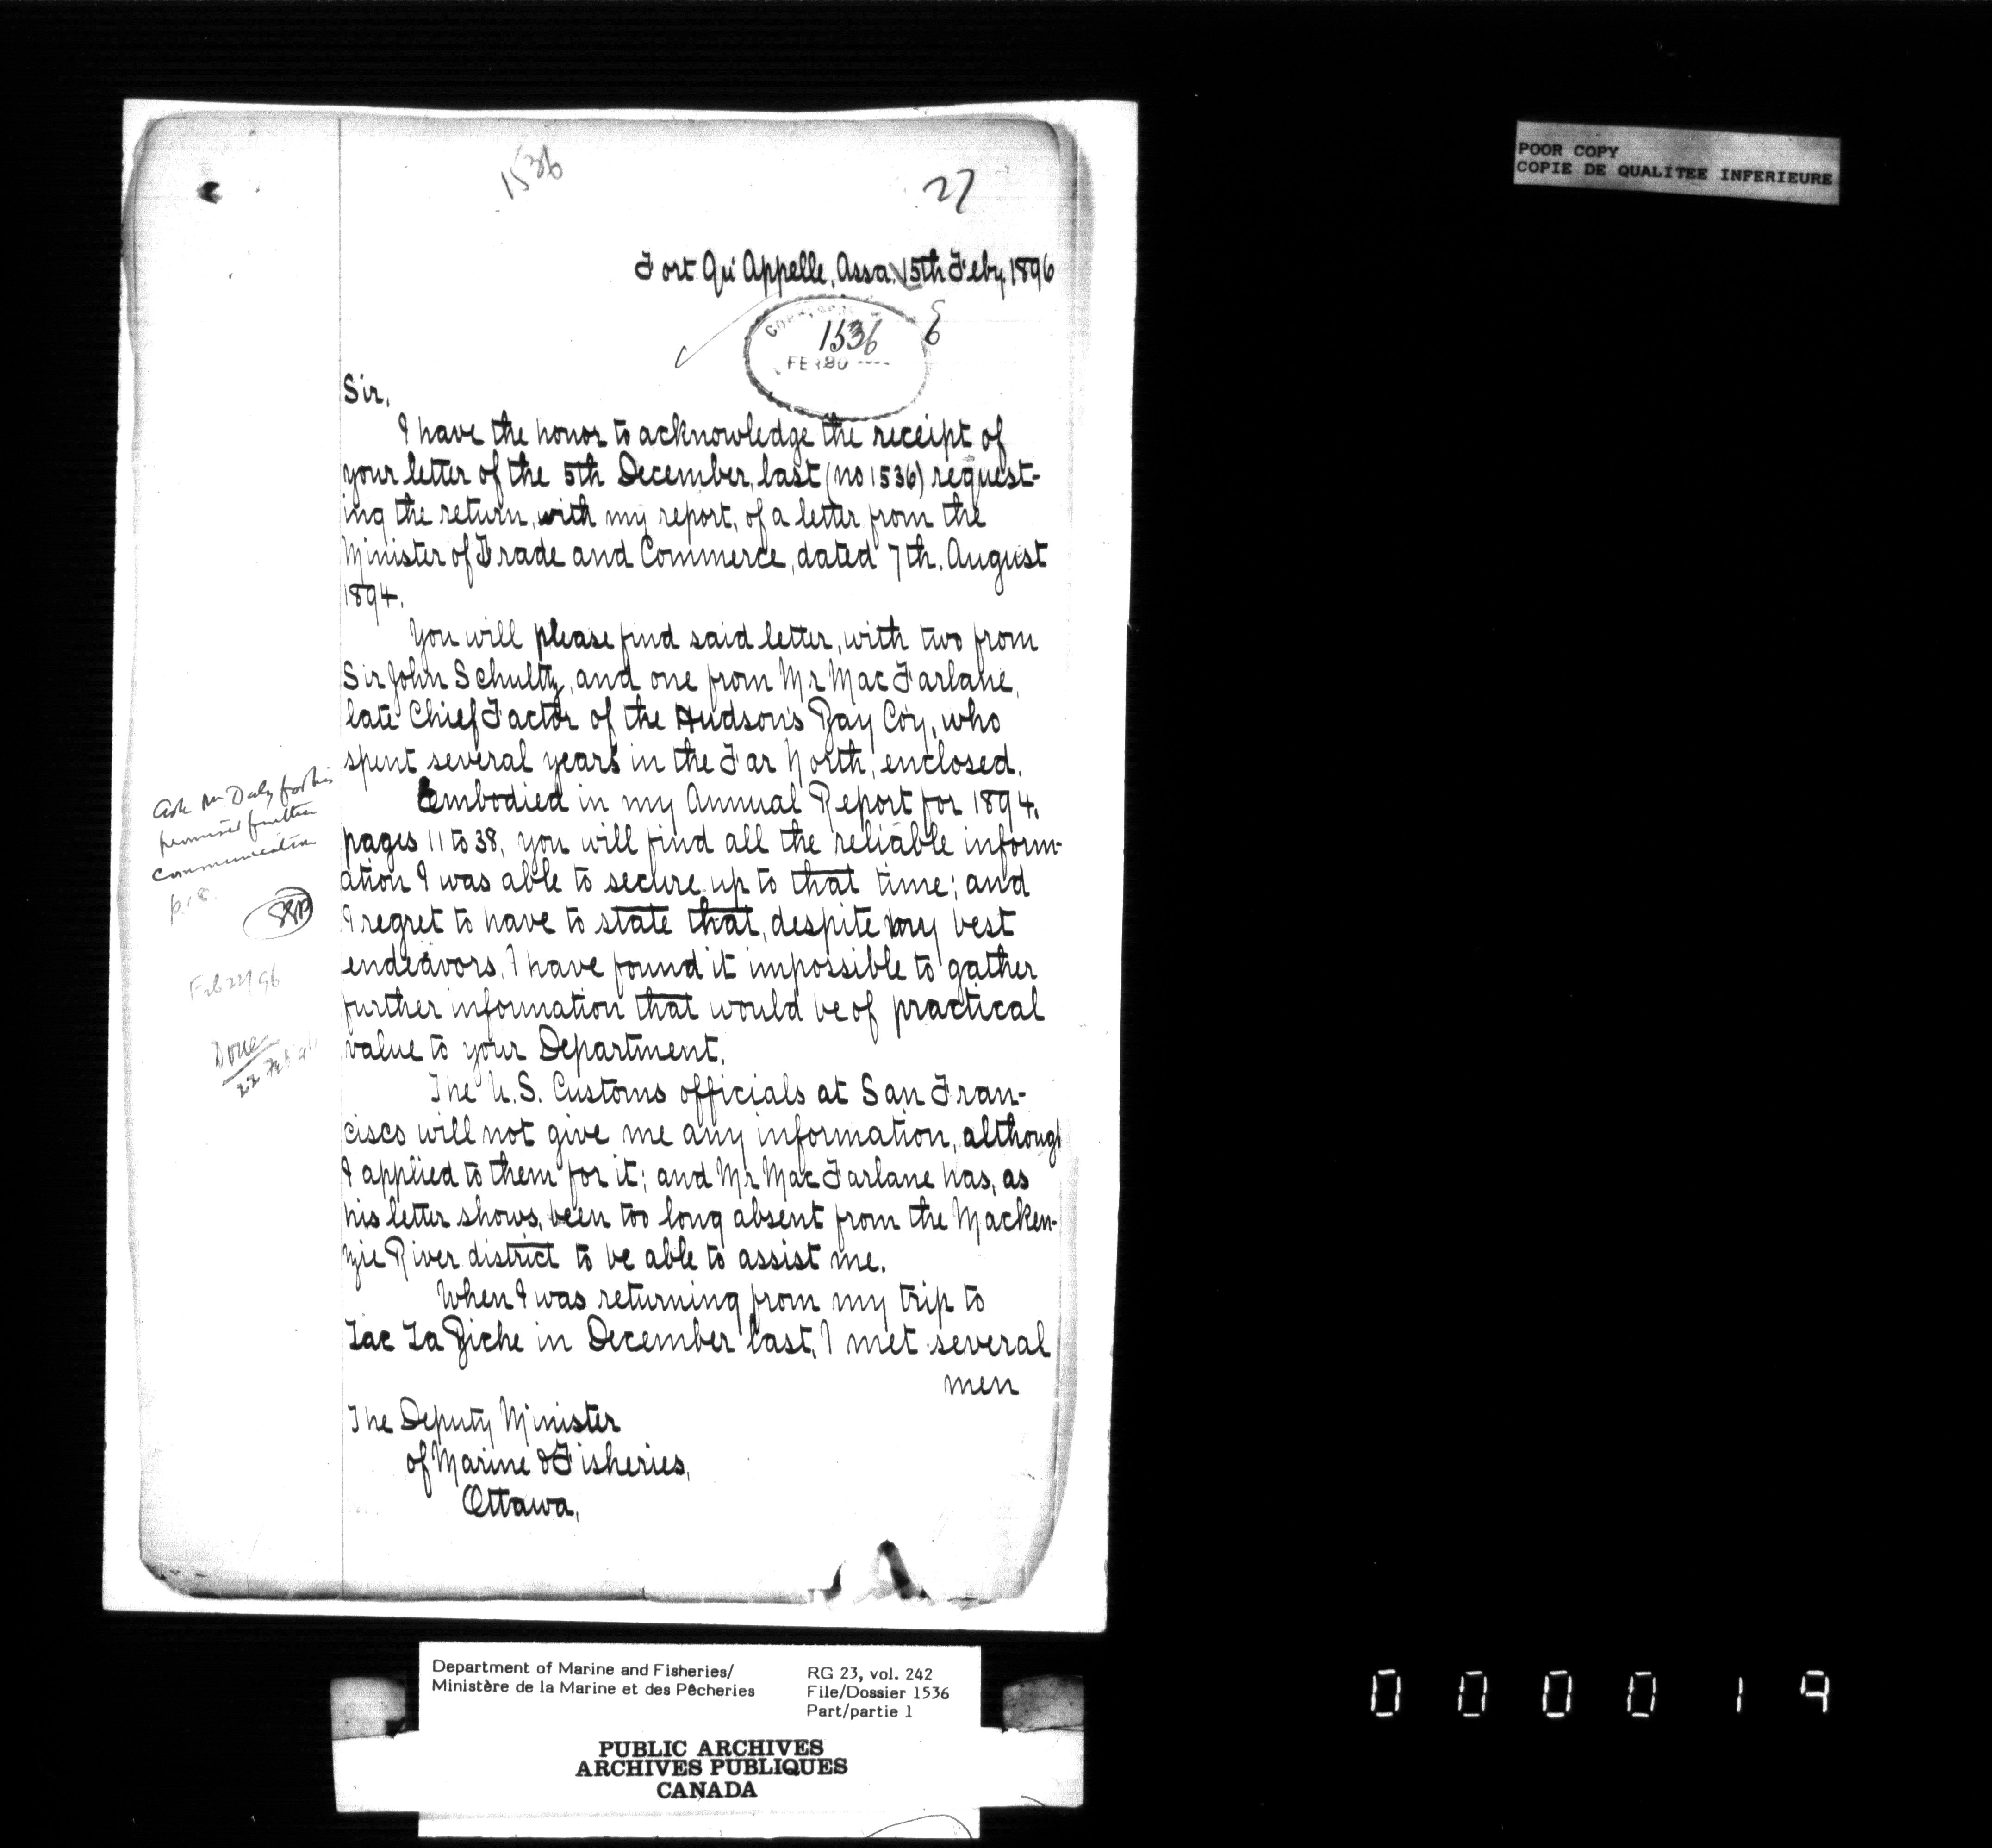 1536
27
Fort Qu'Appelle, Assa. 15th Feby, 1896
1536
FEB 20
Sir,
I have the honor to acknowledge the receipt of
your letter of the 5th December, last (no 1536) request-
ing the return, with my report, of a letter from the
Minister of Trade and Commerce, dated 7th. August
1894.
You will please find said letter, with two from
Sir John Schultz, and one from Mr MacFarlane,
late Chief Factor of the Hudson's Bay Coy, who
spent several years in the Far North, enclosed.
Embodied in my Annual Report for 1894,
pages 11 to 38, you will find all the reliable inform-
ation I was able to secure up to that time; and
I regret to have to state that, despite my best
endeavors, I have found it impossible to gather
further information that would be of practical
value to your Department.
The U.S. Customs officials at San Fran-
cisco will not give me any information, although
I applied to them for it; and Mr MacFarlane has, as
his letter shows, been too long absent from the Macken-
zie River district to be able to assist me.
When I was returning from my trip to
Lac La Biche in December last, I met several
men
The Deputy Minister
of Marine & Fisheries,
Ottawa,
Ask Mr Daly for his
promised further
communication
p. 8.
Feb 22/96
Done
22 Feb 96
POOR COPY
COPIE DE QUALITEE INFERIEURE
Department of Marine and Fisheries/
Ministère de la Marine et des Pêcheries
RG 23, vol. 242
File/Dossier 1536
Part/partie 1
PUBLIC ARCHIVES
ARCHIVES PUBLIQUES
CANADA
000019